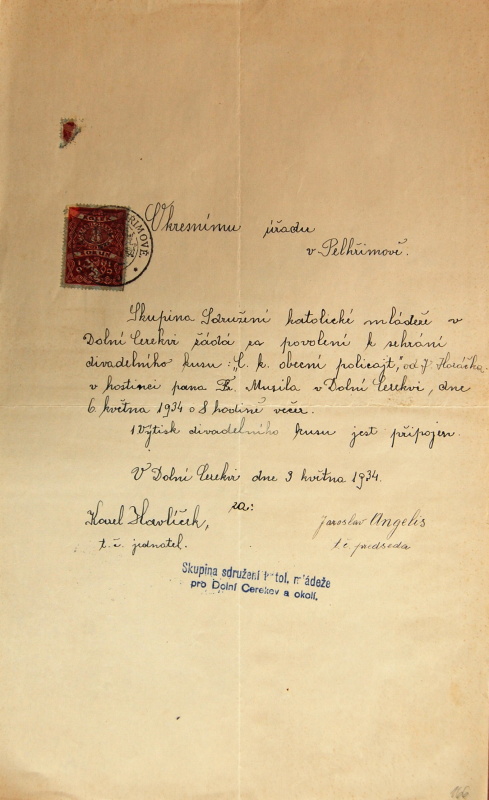 Okresnímu úřadu
v Pelhřimově.
Skupina Sdružení katolické mládeže v
Dolní Cerekvi žádá za povolení k sehrání
divadelního kusu: „C. k. obecní policajt,“ od J. Horáčka
v hostinci pana Musila v Dolní Cerekvi, dne
6. května 1934 o 8 hodině večer.
1 výtisk divadelního kusu jest připojen.
V Dolní Cerekvi dne 3 května 1934.
za:
Karel Havlíček,
t. č. jednatel.
Jaroslav Angelis
t č předseda
Skupina sdružení katol. mládeže
pro Dolní Cerekev a okolí.